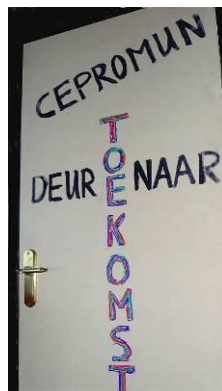 CEPROMUN
DEUR NAAR
TOEKOMST